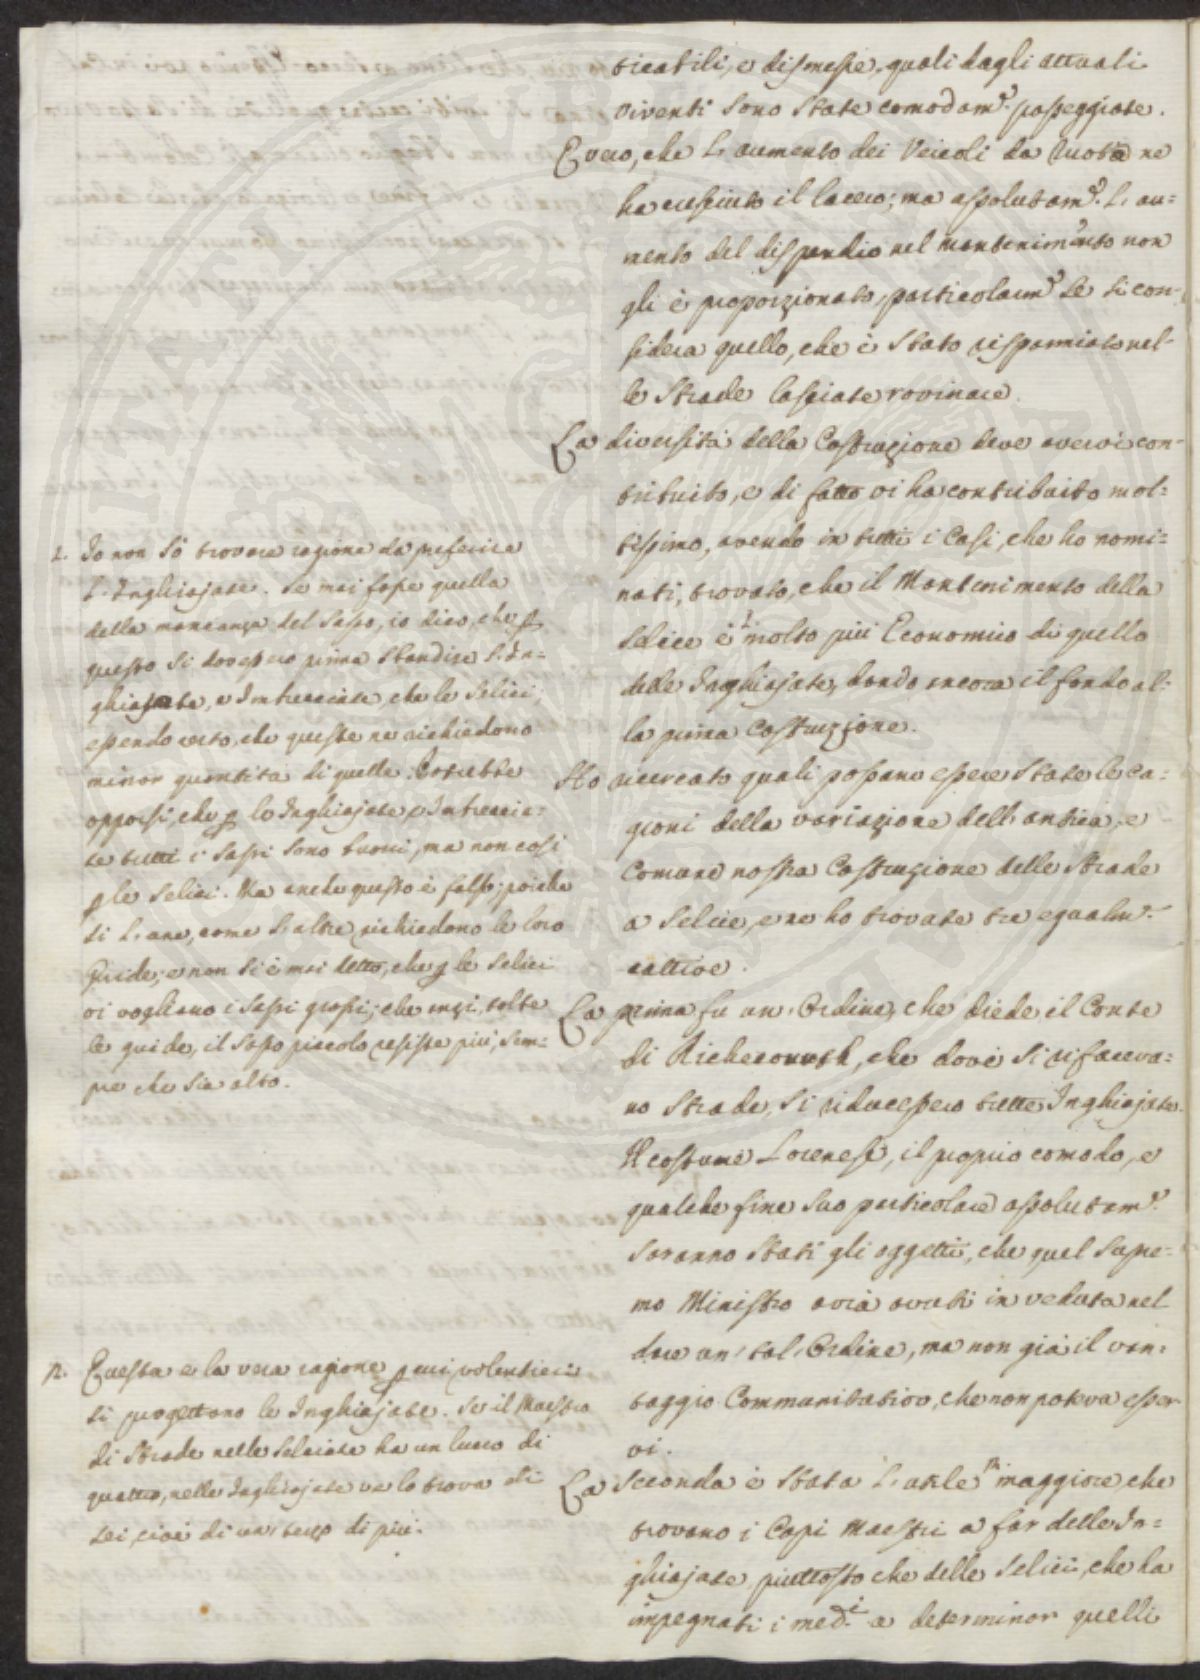 ticabili, e dismesse, quali dagli attuali
viventi sono state comodam.e passeggiate.
È vero, che l'aumento dei Veicoli da ruota ne
ha cresciuto il lacero; ma assolutam.e l'au=
mento del dispendio nel mantenimento non
gli è proporzionato, particolarm.e se si con=
sidera quello, che è stato risparmiato nel=
le Strade lasciate rovinare.
La diversità della Costruzione deve avervi con=
tribuito, e di fatto vi ha contribuito mol=
tissimo, avendo in tutti i Casi, che ho nomi=
nati, trovato, che il Mantenimento della
Selice è molto più Economico di quello
delle Inghiajate, dando ancora il fondo al=
la prima Costruzione.
Ho ricercato quali possano essere state le ca=
gioni della variazione dell'antica, e
Comune nostra Costruzione delle Strade
a Selice, e ne ho trovate tre egualm.e
cattive.
La prima fu un'Ordine, che diede il Conte
di Richecourt, che dove si rifaceva=
no Strade, si riducessero tutte Inghiajate.
Il costume Lorenese, il proprio comodo, e
qualche fine suo particolare assolutam.e
saranno stati gli oggetti, che quel Supre=
mo Ministro avrà avuti in veduta nel
dare un tal Ordine, ma non già il van=
taggio Communitativo, che non poteva esser
vi.
La Seconda è stata l'utile maggiore che
trovano i Capi Maestri a far delle In=
ghiajate piuttosto che delle Selici, che ha
impegnati i med.i a determinar quelli
1. Io non so trovare ragione da preferire
l'Inghiajate. Se mai fosse quella
della mancanza del Sasso, io dico, che p
questo si dovessero prima sbandire l'In=
ghiajate, e Imbrecciate, che le Selici;
essendo certo, che queste ne richiedono
minor quantità di quelle. Potrebbe
opporsi, che p le Inghiajate e Imbreccia=
te tutti i Sassi sono buoni, ma non così
p le Selici. Ma anche questo è falso; poiche
si l'une, come l'altre richiedono le loro
Guide; e non si è mai detto, che p le Selici
vi vogliono i Sassi grossi; che anzi, tolte
le guide, il Sasso piccolo resiste più, sem=
pre che sia alto.
2. Questa è la vera ragione p cui volentieri
si progettano le Inghiajate. Se il Maestro
di Strade nelle Selciate ha un lucro di
quattro, nelle Inghiajate ve lo trova di
sei, cioè di un terzo di più.